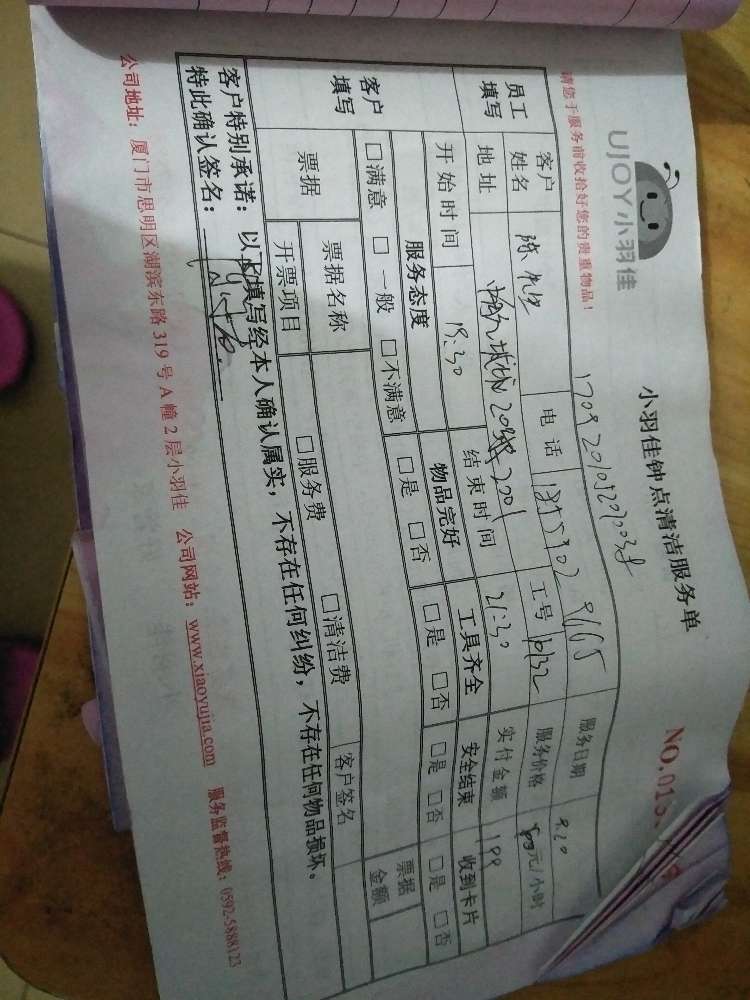 UJOY小羽佳
小羽佳钟点清洁服务单
NO.013
请您于服务前收拾好您的贵重物品！
员工填写
客户姓名 陈 电话 服务日期 9.20
地址 2001 工号 10132 服务价格 元/小时
开始时间 18:30 结束时间 21:30 实付金额 199
客户填写
服务态度 物品完好 工具齐全 安全结束 收到卡片
□满意 □一般 □不满意 □是 □否 □是 □否 □是 □否 □是 □否
票据 票据名称 □服务费 □清洁费 客户签名 票据金额
开票项目
客户特别承诺：以上填写经本人确认属实，不存在任何纠纷，不存在任何物品损坏。
特此确认签名：
公司地址：厦门市思明区湖滨东路319号A幢2层小羽佳 公司网站：www.xiaoyujia.com 服务监督热线：0592-5888123